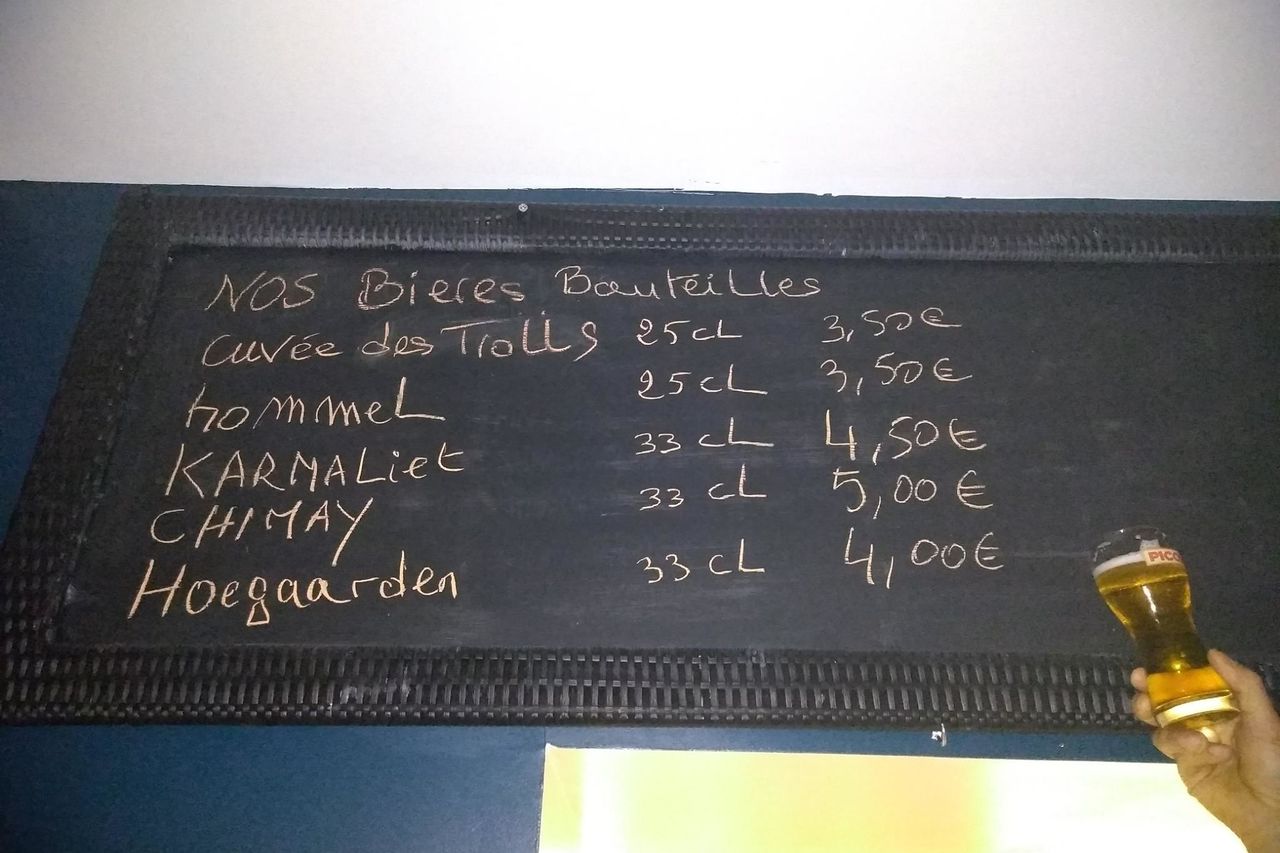 NOS Bieres Bouteilles
cuvée des Trolls 25cL 3,50€
hommeL 25cL 3,50€
KARMALiet 33cL 4,50€
CHIMAY 33cL 5,00€
Hoegaarden 33cL 4,00€
PICO